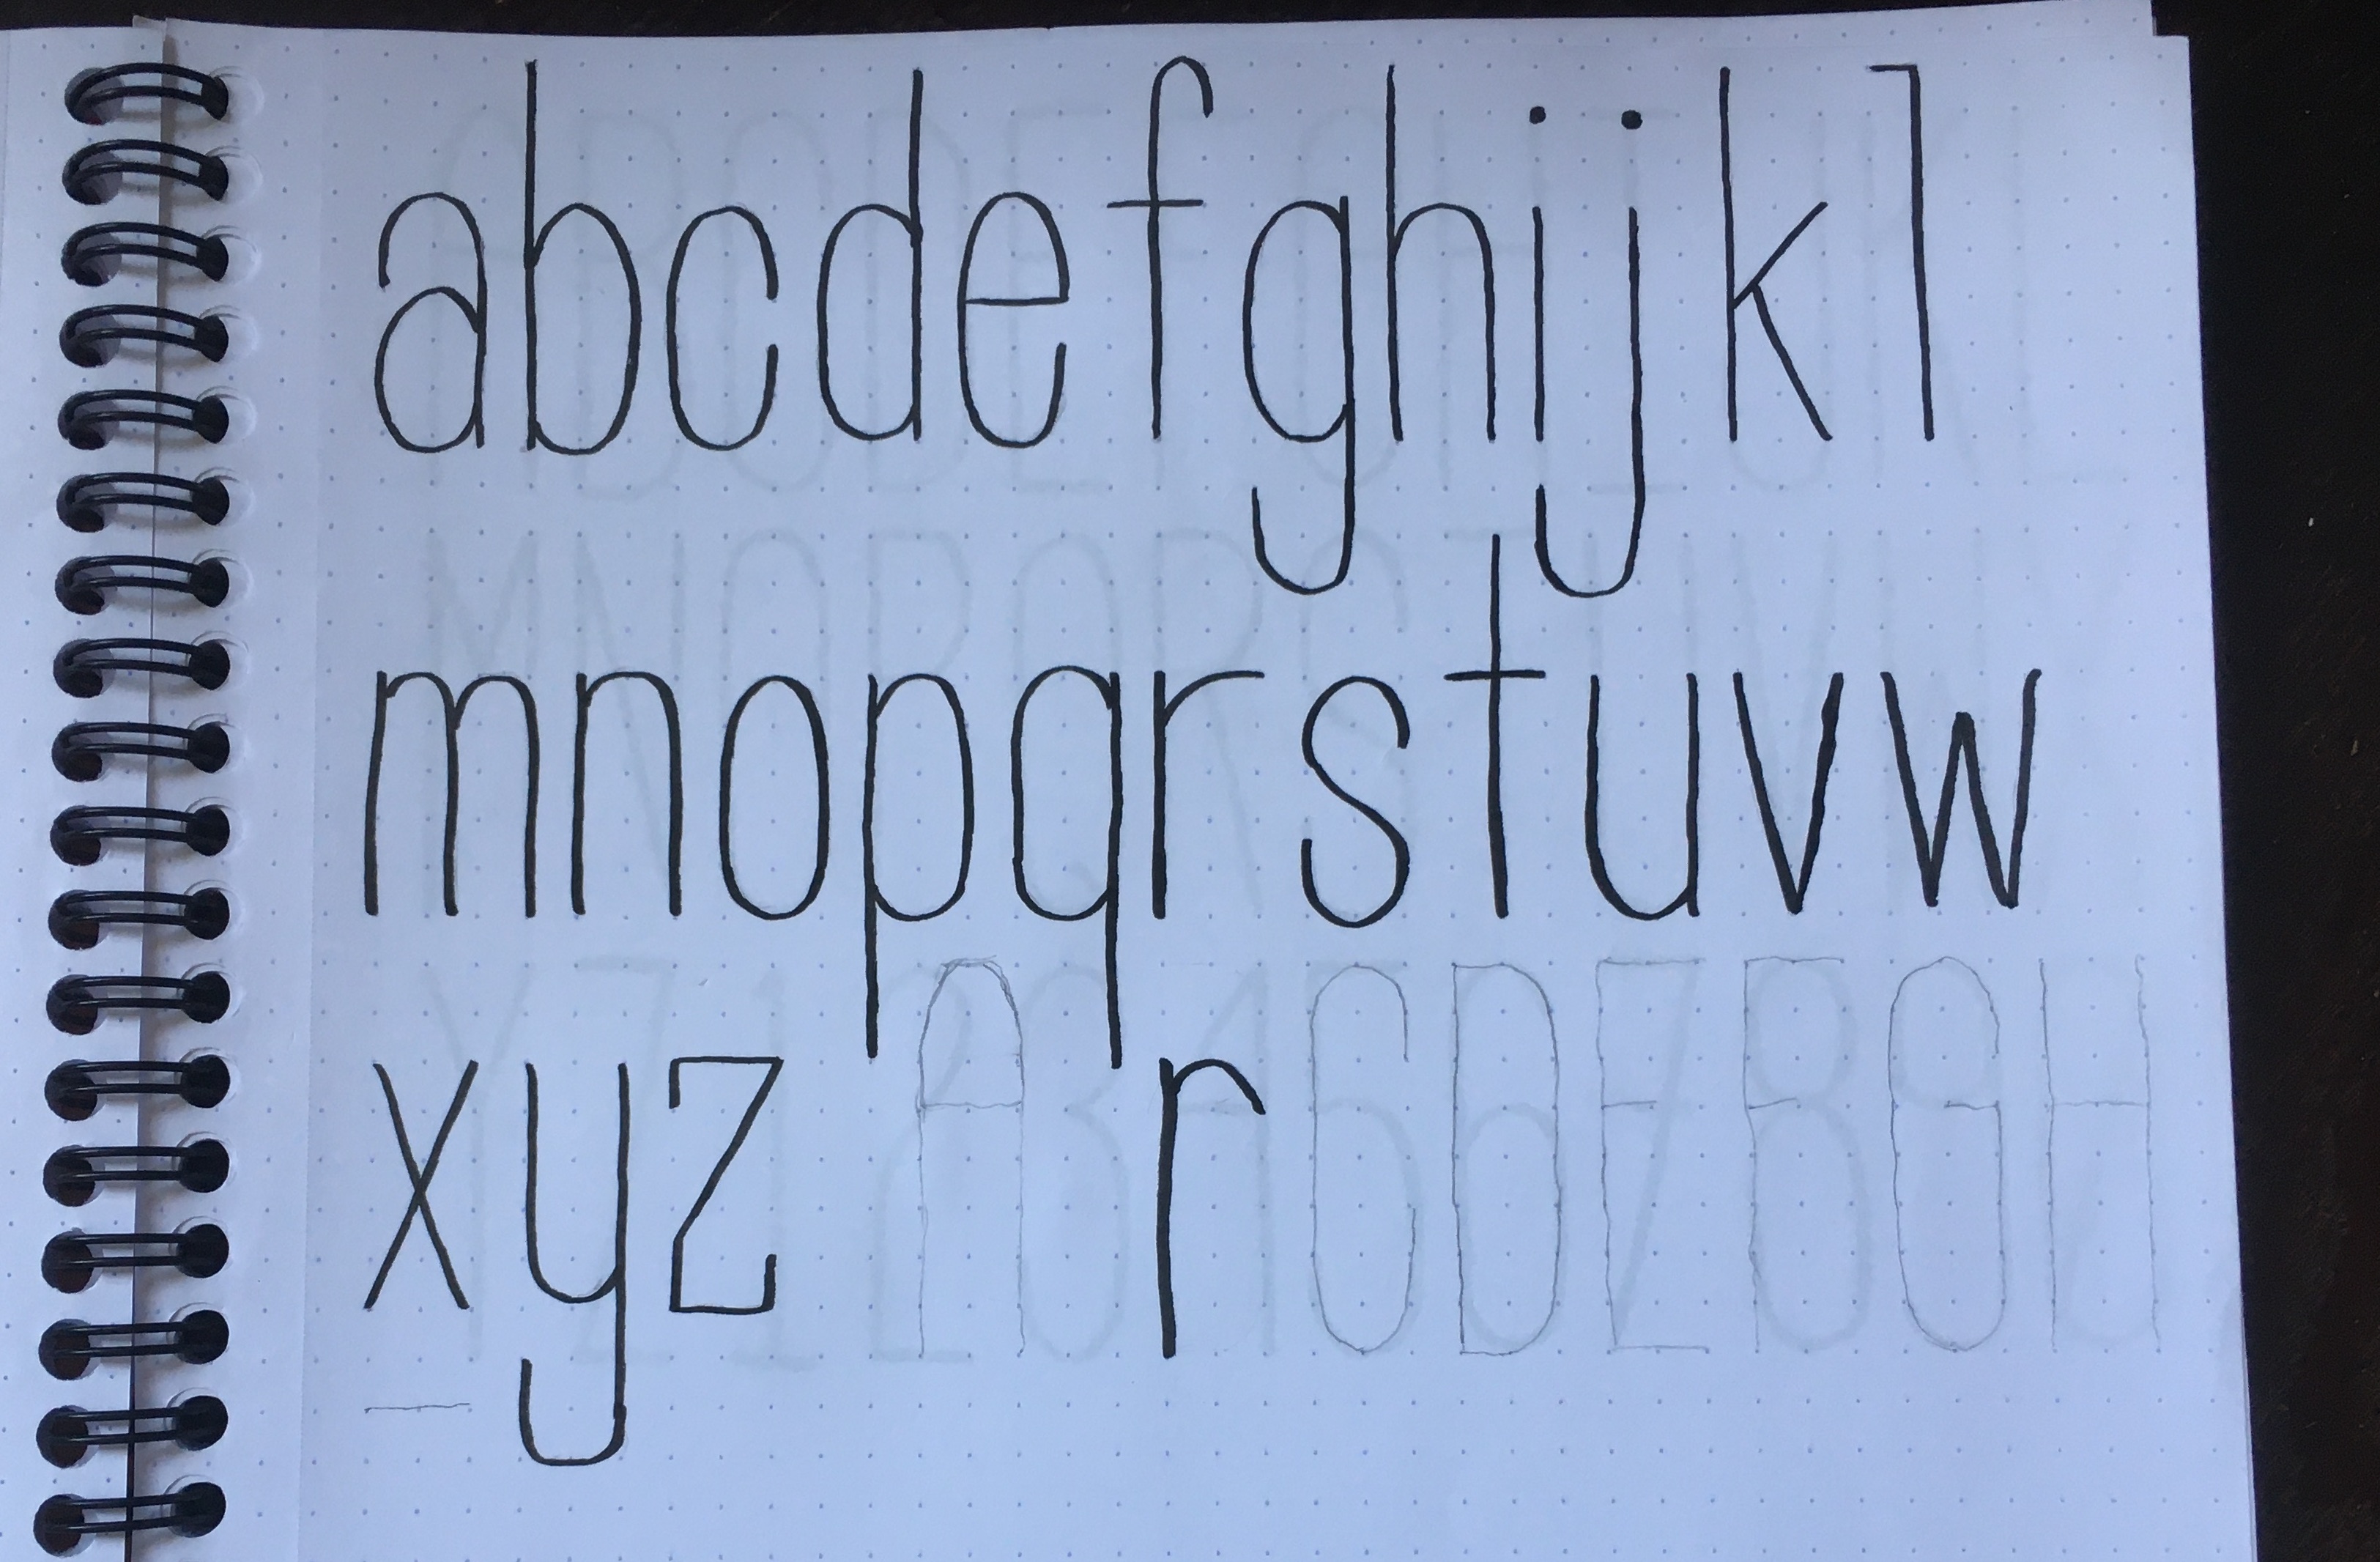 abcdefghijkl
mnopqrstuvw
xyz A r CDEFGH